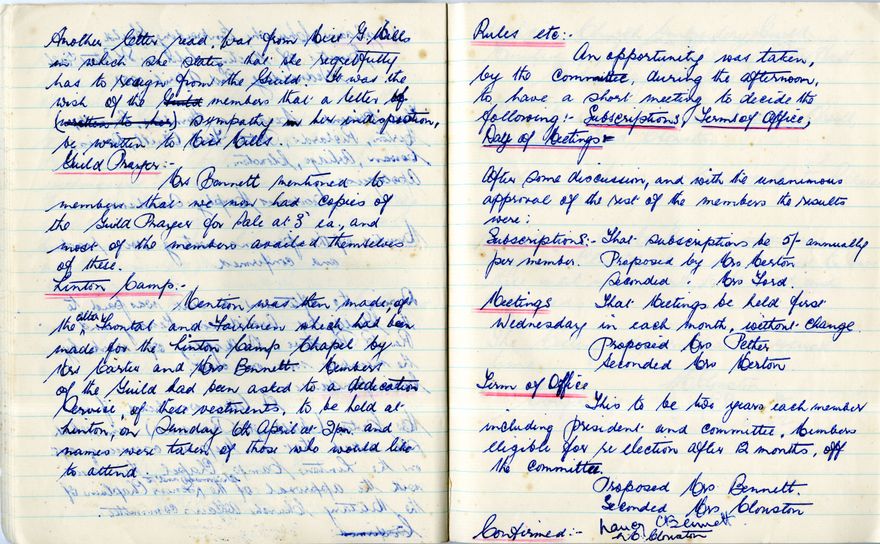 Another letter read, was from Miss G. Mills
in which she states that she regretfully
has to resign from the Guild. It was the
wish of the Guild members that a letter of
(written to her) sympathy in her indisposition,
be written to Miss Mills.
Guild Prayer:-
Mrs Bennett mentioned to
members that we now had copies of
the Guild Prayer for sale at 3d ea., and
most of the members availed themselves
of these.
Linton Camp:-
Mention was then made, of
the altar frontal and Fairlinen which had been
made for the Linton Camp Chapel by
Mrs Carter and Mrs Bennett. Members
of the Guild had been asked to a dedication
Service, of these vestments, to be held at
Linton, on Sunday 6th April at 3pm and
names were taken of those who would like
to attend.
Rules etc:-
An opportunity was taken,
by the committee, during the afternoon,
to have a short meeting to decide the
following:- Subscriptions, Terms of Office,
Days of Meetings
After some discussion, and with the unanimous
approval of the rest of the members the results
were:
Subscriptions:- That subscriptions be 5/- annually
per member. Proposed by Mrs Merton
Seconded . Mrs Ford.
Meetings That Meetings be held first
Wednesday in each month, without change.
Proposed Mrs Pether
Seconded Mrs Merton
Term of Office
This to be two years each member
including President and committee, Members
eligible for re election after 12 months, off
the committee.
Proposed Mrs Bennett.
Seconded Mrs Clouston
Confirmed:- Bennett
Clouston